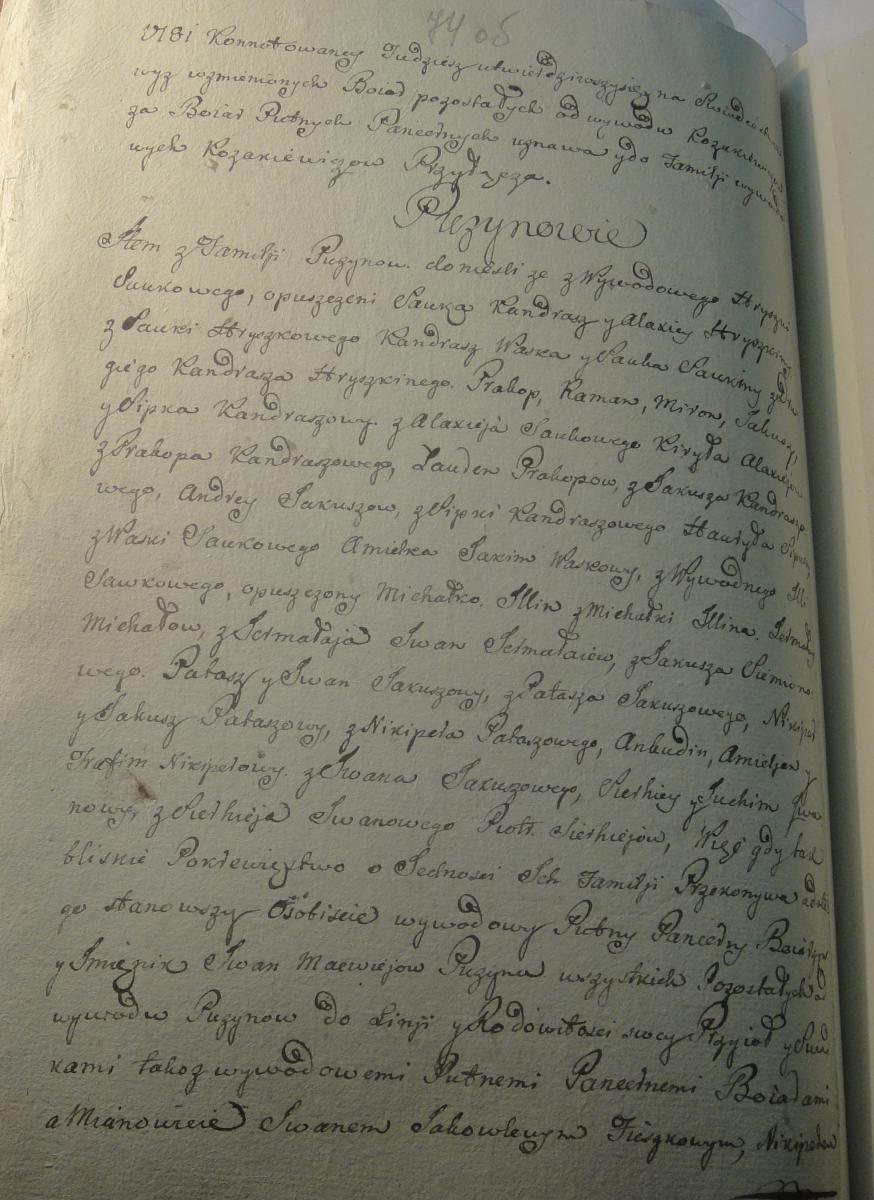 74 об
Konnotowaney Judziesz utwierdziwszysię na Swiadectwa
wyz wzmienionych Boiar pozostałych od wywodu Kozakiewiczow
za Boiar Putnych Pancernych uznawa y do Familji wywodo
wych Kozakiewiczow Przyłącza.
Puzynowie
Item z Familji Puzynow. donieśli ze z Wywodowego Hryszki
Saukowego, opuszczeni Sauka Kandrasz y Alaxiey Hryszkiny,
z Sauki Hryszkowego Kandrasz Waska y Sauka Saukiny z dru
giego Kandrasza Hryszkinego. Prakop, Raman, Miron, Jakusz,
y Sipka Kandraszowy. z Alaxieja Saukowego Kiryła Alaxiejow
z Prakopa Kandraszowego, Lauden Prakopow, z Jakusza Kandraszo
wego, Andrey Jakuszow, z Sipki Kandraszowego Hauryła Sipkin,
z Waski Saukowego Amielka Jakim Waskowy, z Wywodnego Illi
Sawkowego, opuszczony Michałko. Illin z Michałki Illina. Jermałay
Michałow, z Jermałaja Iwan Jermałaiew, z Jakusza Siemiono
wego. Pałasz y Iwan Jakuszowy, z Pałasza Jakuszowego, Nikipar
y Jakusz Pałaszowy, z Nikipera Pałaszowego, Ankudin, Amieljan y
Trafim Nikiperowy. z Iwana Jakuszowego, Sierhiey y Juchim Iwa
nowy, z Sierhieja Iwanowego Piotr Sierhiejow, Więc gdy tak
bliskie Pokrewięstwo o Jednosci Ich Familji Przekonywa
go stanowszy Osobiscie wywodowy Putny Pancerny Boiarzyn
y Imięnik Iwan Macwiejow Puzyna wszystkich Pozostałych od
wywodu Puzynow do Linji y Rodowitosci swey Przyioł y Swia
kami takoz wywodowemi Putnemi Pancernemi Boiarami
a Mianowicie Iwanem Jakowlewym Nikiperem